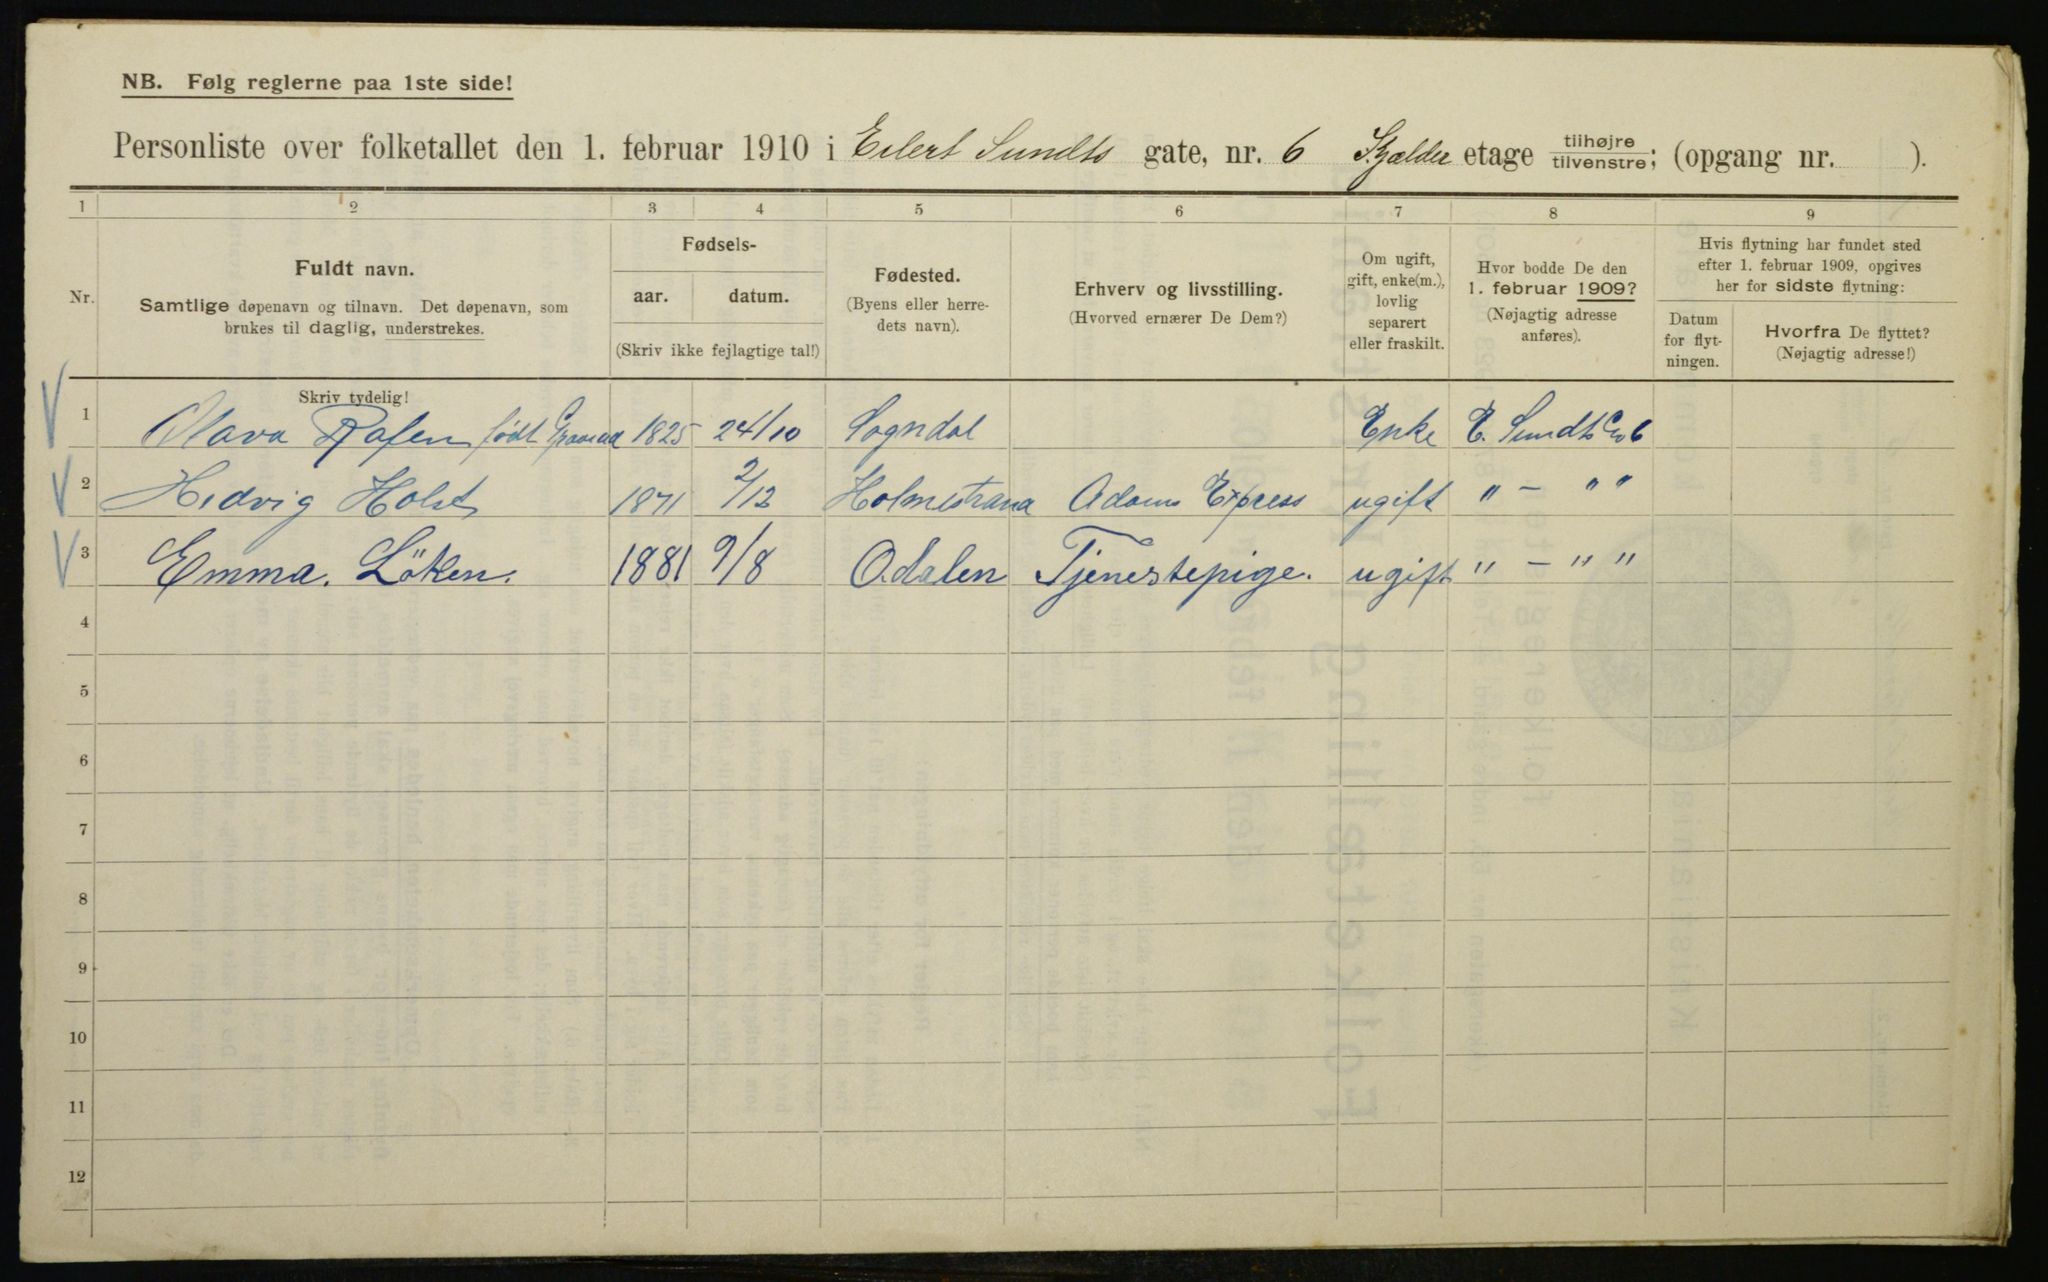 NB. Følg reglerne paa 1ste side!
Personliste over folketallet den 1. februar 1910 i Eilert Sundts gate, nr. 6 Kjælder etage tilhøjre/tilvenstre; (opgang nr. ).
1 2 3 4 5 6 7 8 9
Nr.
Fuldt navn.
Samtlige døpenavn og tilnavn. Det døpenavn, som
brukes til daglig, understrekes.
Fødsels-
aar. datum.
(Skriv ikke fejlagtige tal!)
Fødested.
(Byens eller herre-
dets navn).
Erhverv og livsstilling.
(Hvorved ernærer De Dem?)
Om ugift,
gift, enke(m.),
lovlig
separert
eller fraskilt.
Hvor bodde De den
1. februar 1909?
(Nøjagtig adresse
anføres).
Hvis flytning har fundet sted
efter 1. februar 1909, opgives
her for sidste flytning:
Datum
for flyt-
ningen.
Hvorfra De flyttet?
(Nøjagtig adresse!)
Skriv tydelig!
1 Olava Rafen født 1825 24/10 Sogndal Enke E. Sundts 6
2 Hedvig Holst 1871 2/12 Holmestrand Adams Express ugift " - " "
3 Emma. Löken. 1881 9/8 Odalen Tjenestepige. ugift " - " "
4
5
6
7
8
9
10
11
12